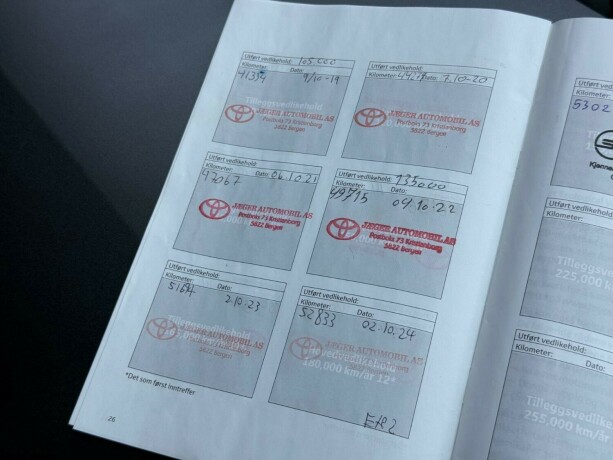 Utført vedlikehold: 105.000
Kilometer: Dato:
41334 9/10-19
JÆGER AUTOMOBIL AS
Postboks 73 Kristianborg
5822 Bergen
Utført vedlikehold:
Kilometer: Dato: 7.10-20
JÆGER AUTOMOBIL AS
Postboks 73 Kristianborg
5822 Bergen
Utført vedlikehold:
Kilometer: Dato: 06.10.21
47067
JÆGER AUTOMOBIL AS
Postboks 73 Kristianborg
5822 Bergen
Utført vedlikehold: 135000
Kilometer: Dato:
49715 04.10.22
JÆGER AUTOMOBIL AS
Postboks 73 Kristianborg
5822 Bergen
Utført vedlikehold:
Kilometer: Dato:
2.10.23
JÆGER AUTOMOBIL AS
Postboks 73 Kristianborg
5822 Bergen
Utført vedlikehold:
Kilometer: Dato:
52833 02.10.24
JÆGER AUTOMOBIL AS
Hovedvedlikehold
180,000 km/år 12*
*Det som først inntreffer
26
Kilometer:
5302
Utført vedlikehold:
Kilometer:
Tilleggsvedlikehold
225,000 km/
Utført vedlikehold:
Kilometer:
Tilleggsvedlike
255,000 km/år